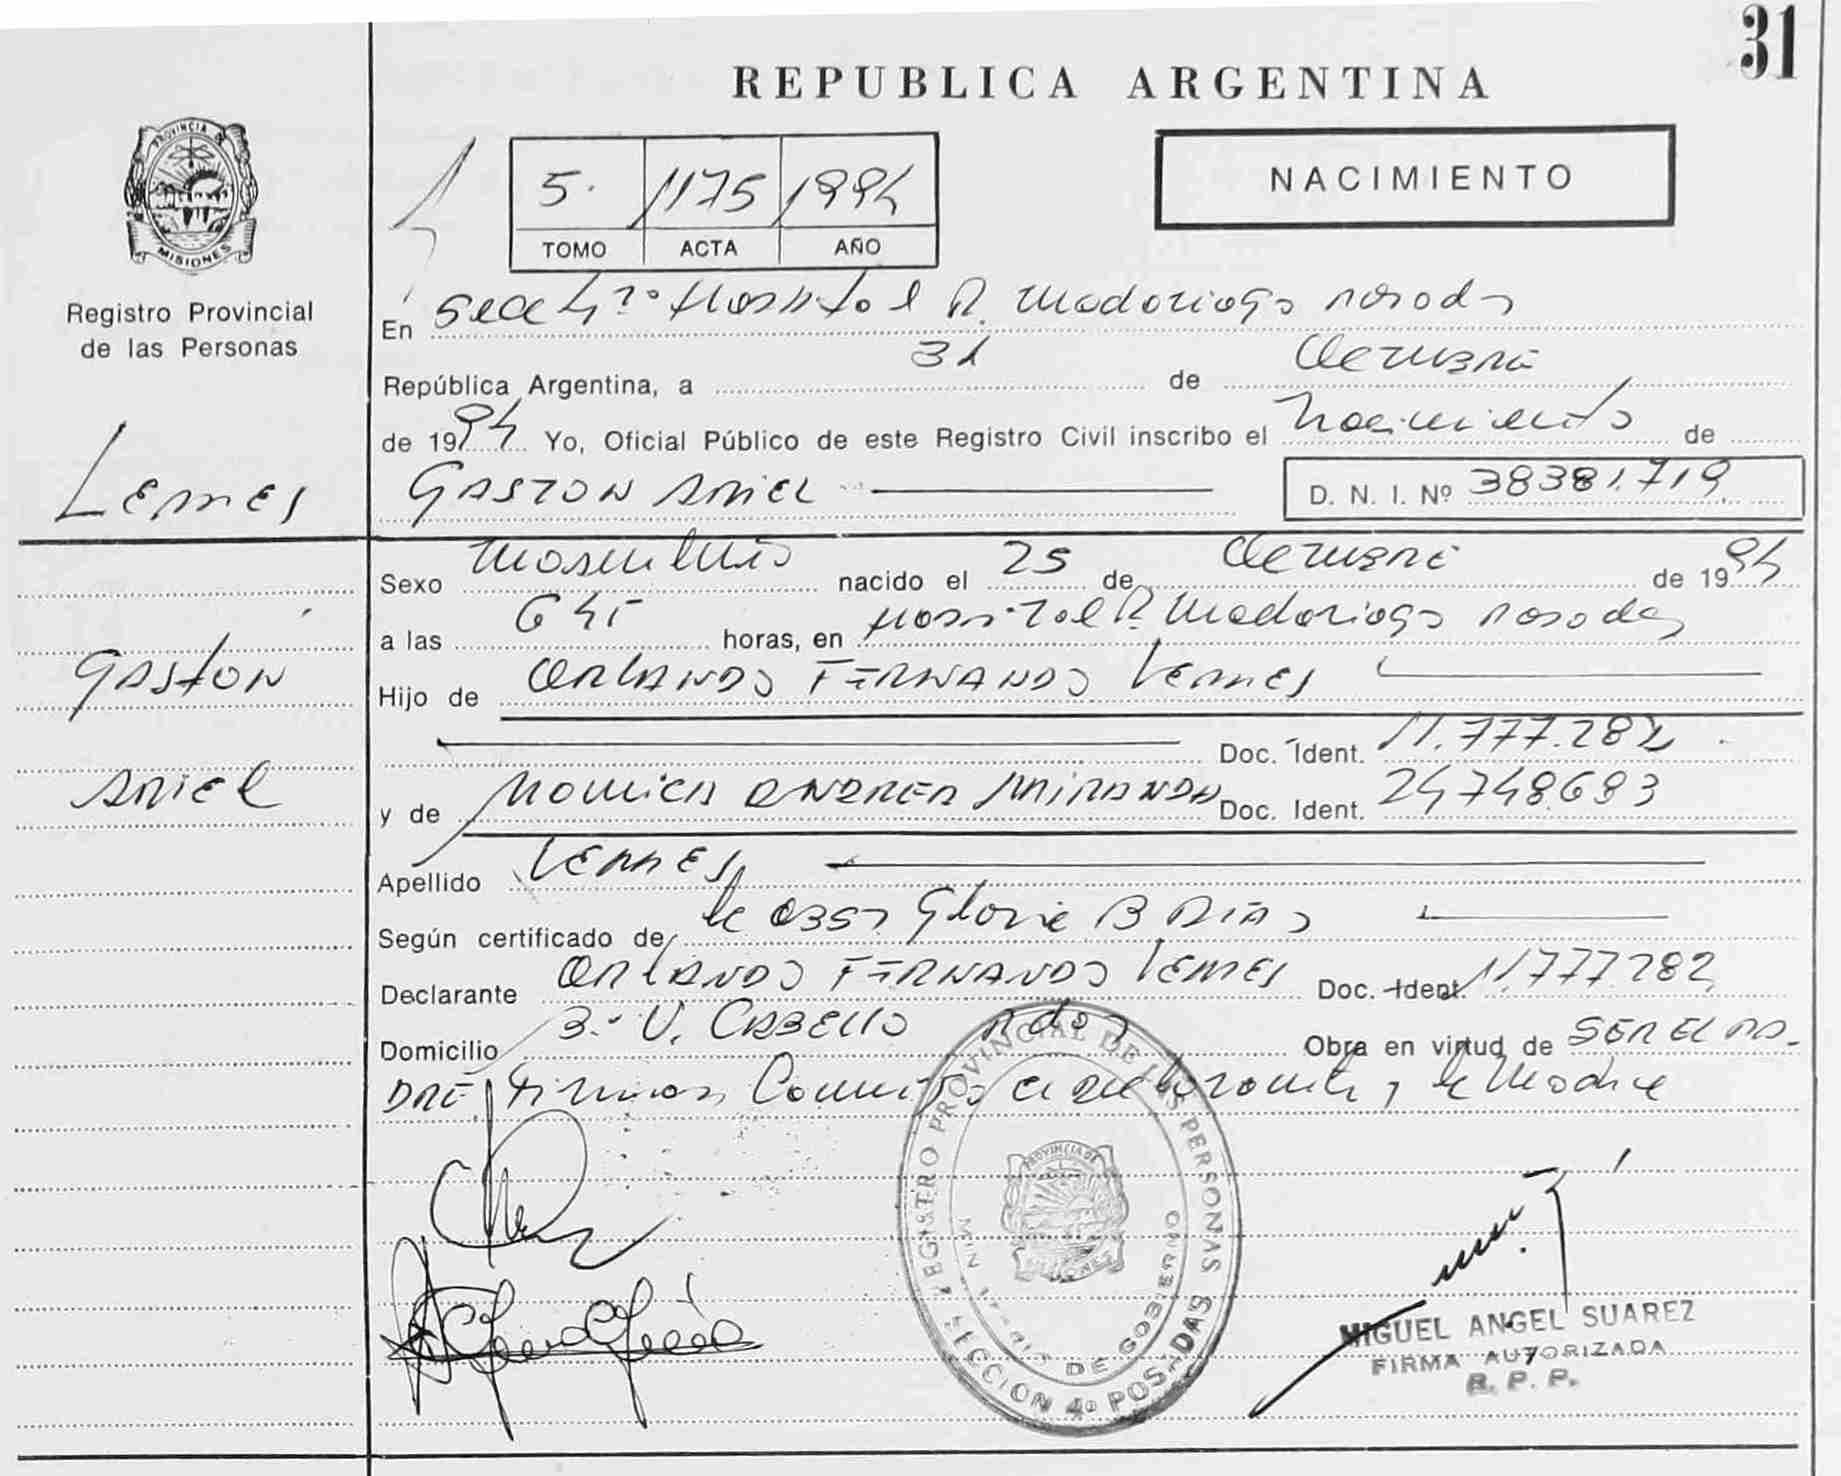 31
REPUBLICA ARGENTINA
PROVINCIA DE
MISIONES
Registro Provincial
de las Personas
5. 1175 1994
TOMO ACTA AÑO
NACIMIENTO
En Secc 4ª Hospital R. Madariaga Posadas
República Argentina, a 31 de Octubre
de 1994 Yo, Oficial Público de este Registro Civil inscribo el Nacimiento de
LEMES
GASTON ARIEL D. N. I. Nº 38381.719
Sexo Masculino nacido el 25 de Octubre de 1994
a las 645 horas, en Hospital R. Madariaga Posadas
GASTON
Hijo de ORLANDO FERNANDO LEMES
Doc. Ident. 11.777.282
ARIEL
y de MONICA ANDREA MIRANDA Doc. Ident. 24748.683
Apellido LEMES
Según certificado de Gloria B
Declarante ORLANDO FERNANDO LEMES Doc. Ident. 11.777.282
Domicilio CABELLO Pdas Obra en virtud de SER EL PA-
DRE. Firman Conmigo el declarante y la Madre
REGISTRO PROVINCIAL DE LAS PERSONAS
SECCION 4ª POSADAS
DE GOBIERNO
PROVINCIA DE
MISIONES
MIGUEL ANGEL SUAREZ
FIRMA AUTORIZADA
R. P. P.